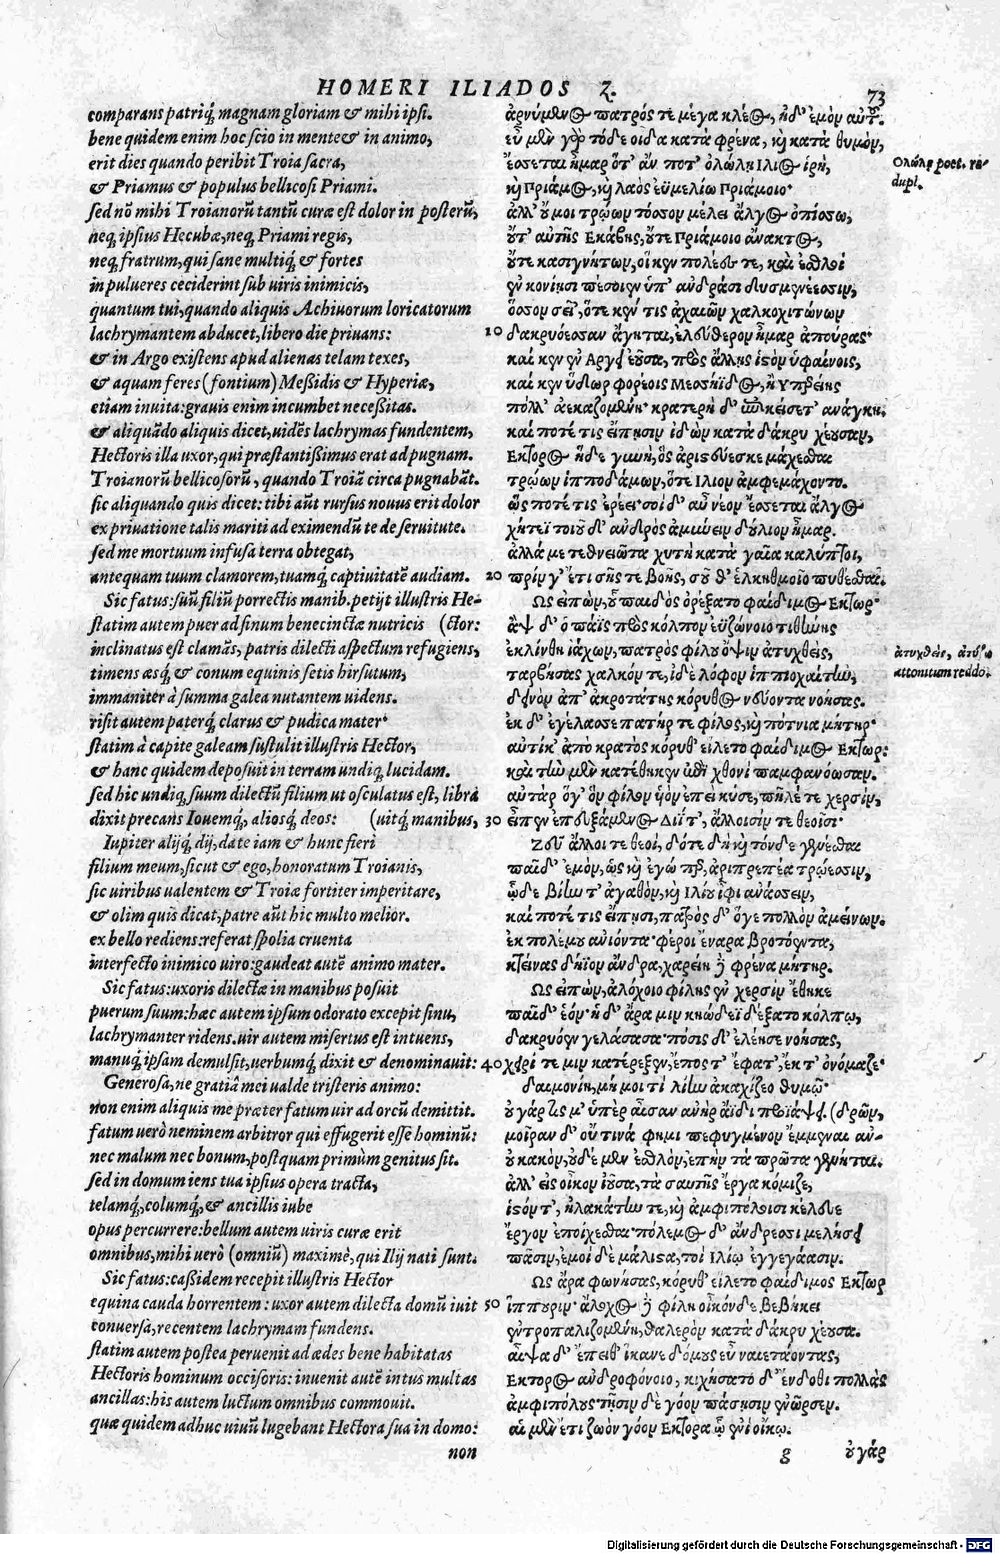 HOMERI ILIADOS Ζ.
73
comparans patriq́; magnam gloriam & mihi ipsi.
bene quidem enim hoc scio in mente & in animo,
erit dies quando peribit Troia sacra,
& Priamus & populus bellicosi Priami.
sed nō mihi Troianorū tantū curæ est dolor in posterū,
neq; ipsius Hecubæ, neq; Priami regis,
neq; fratrum, qui sane multiq́; & fortes
in pulueres ceciderint sub uiris inimicis,
quantum tui, quando aliquis Achiuorum loricatorum
lachrymantem abducet, libero die priuans:
& in Argo existens apud alienas telam texes,
& aquam feres (fontium) Meßidis & Hyperiæ,
etiam inuita: grauis enim incumbet neceßitas.
& aliquādo aliquis dicet, uidēs lachrymas fundentem,
Hectoris illa uxor, qui præstantißimus erat ad pugnam.
Troianorū bellicosorū, quando Troiā circa pugnabāt.
sic aliquando quis dicet: tibi aūt rursus nouus erit dolor
ex priuatione talis mariti ad eximendū te de seruitute.
sed me mortuum infusa terra obtegat,
antequam tuum clamorem, tuamq́; captiuitatē audiam.
Sic fatus: suū filiū porrectis manib. petijt illustris He-
statim autem puer ad sinum benecinctæ nutricis (ctor:
inclinatus est clamās, patris dilecti aspectum refugiens,
timens æsq́; & conum equinis setis hirsutum,
immaniter à summa galea nutantem uidens.
risit autem paterq́; clarus & pudica mater·
statim à capite galeam sustulit illustris Hector,
& hanc quidem deposuit in terram undiq; lucidam.
sed hic undiq; suum dilectū filium ut osculatus est, librā
dixit precans Iouemq́;, aliosq́; deos: (uitq́; manibus,
Iupiter alijq́; dij, date iam & hunc fieri
filium meum, sicut & ego, honoratum Troianis,
sic uiribus ualentem & Troiæ fortiter imperitare,
& olim quis dicat, patre aūt hic multo melior.
ex bello rediens: referat spolia cruenta
interfecto inimico uiro: gaudeat autē animo mater.
Sic fatus: uxoris dilectæ in manibus posuit
puerum suum: hæc autem ipsum odorato excepit sinu,
lachrymanter ridens. uir autem misertus est intuens,
manuq́; ipsam demulsit, uerbumq́; dixit & denominauit:
Generosa, ne gratiā mei valde tristeris animo:
non enim aliquis me præter fatum uir ad orcū demittit.
fatum uerò neminem arbitror qui effugerit esse hominū:
nec malum nec bonum, postquam primùm genitus sit.
sed in domum iens tua ipsius opera tracta,
telamq́;, columq́;, & ancillis iube
opus percurrere: bellum autem uiris curæ erit
omnibus, mihi uerò (omniū) maximè, qui Ilij nati sunt.
Sic fatus: caßidem recepit illustris Hector
equina cauda horrentem: uxor autem dilecta domū iuit
conuersa, recentem lachrymam fundens.
statim autem postea peruenit ad ædes bene habitatas
Hectoris hominum occisoris: inuenit autē intus multas
ancillas: his autem luctum omnibus commouit.
quæ quidem adhuc uiuū lugebant Hectora sua in domo:
non
ἀρνύμενος πατρός τε μέγα κλέος, ἠδ' ἐμὸν αὐτ͂.
εὖ μὲν γὰρ τόδε οἶδα κατὰ φρένα, καὶ κατὰ θυμόν,
ἔσεται ἦμαρ ὅτ' ἄν ποτ' ὀλώλῃ Ιλιος ἱρή,
καὶ Πρίαμος, καὶ λαὸς ἐϋμελίω Πριάμοιο·
ἀλλ' οὔ μοι τρώων τόσσον μέλει ἄλγος ὀπίσσω,
οὔτ' αὐτῆς Εκάβης, οὔτε Πριάμοιο ἄνακτος,
οὔτε κασιγνήτων, οἵ κεν πολέες τε, καὶ ἐσθλοὶ
ἐν κονίῃσι πέσοιεν ὑπ' ἀνδράσι δυσμενέεσσιν,
ὅσσον σεῖ', ὅτε κέν τις ἀχαιῶν χαλκοχιτώνων
10 δακρυόεσσαν ἄγηται, ἐλεύθερον ἦμαρ ἀπούρας·
καί κεν ἐν Αργει ἐοῦσα, πρὸς ἄλλης ἱστὸν ὑφαίνοις,
καί κεν ὕδωρ φορέοις Μεσσηΐδος, ἢ Υπερείης
πόλλ' ἀεκαζομένη· κρατερὴ δ' ἐπικείσετ' ἀνάγκη.
καί ποτέ τις εἴπῃσιν ἰδὼν κατὰ δάκρυ χέουσαν,
Εκτορος ἥδε γυνή, ὃς ἀριστεύεσκε μάχεσθαι
τρώων ἱπποδάμων, ὅτε Ιλιον ἀμφεμάχοντο.
ὥς ποτέ τις ἐρέει· σοὶ δ' αὖ νέον ἔσσεται ἄλγος
χήτεϊ τοιοῦδ' ἀνδρὸς ἀμύνειν δούλιον ἦμαρ.
ἀλλά με τεθνειῶτα χυτὴ κατὰ γαῖα καλύπτοι,
20 πρίν γ' ἔτι σῆς τε βοῆς, σοῦ θ' ἑλκηθμοῖο πυθέσθαι.
Ως εἰπών, οὗ παιδὸς ὀρέξατο φαίδιμος Εκτωρ·
ἂψ δ' ὁ πάϊς πρὸς κόλπον ἐϋζώνοιο τιθήνης
ἐκλίνθη ἰάχων, πατρὸς φίλου ὄψιν ἀτυχθείς,
ταρβήσας χαλκόν τε, ἰδὲ λόφον ἱππιοχαίτην,
δεινὸν ἀπ' ἀκροτάτης κόρυθος νεύοντα νοήσας.
ἐκ δ' ἐγέλασσε πατήρ τε φίλος, καὶ πότνια μήτηρ·
αὐτίκ' ἀπὸ κρατὸς κόρυθ' εἵλετο φαίδιμος Εκτωρ:
καὶ τὴν μὲν κατέθηκεν ἐπὶ χθονὶ παμφανόωσαν.
αὐτὰρ ὅγ' ὃν φίλον υἱὸν ἐπεὶ κύσε, πῆλέ τε χερσίν,
30 εἶπεν ἐπευξάμενος Διΐ τ', ἄλλοισίν τε θεοῖσι·
Ζεῦ ἄλλοι τε θεοί, δότε δὴ καὶ τόνδε γενέσθαι
παῖδ' ἐμόν, ὡς καὶ ἐγώ περ, ἀριπρεπέα τρώεσσιν,
ὧδε βίην τ' ἀγαθόν, καὶ Ιλίου ἶφι ἀνάσσειν,
καί ποτέ τις εἴπῃσι, πατρὸς δ' ὅγε πολλὸν ἀμείνων.
ἐκ πολέμου ἀνιόντα· φέροι ἔναρα βροτόεντα,
κτείνας δήϊον ἄνδρα, χαρείη δὲ φρένα μήτηρ.
Ως εἰπών, ἀλόχοιο φίλης ἐν χερσὶν ἔθηκε
παῖδ' ἑόν· ἡ δ' ἄρα μιν κηώδεϊ δέξατο κόλπῳ,
δακρυόεν γελάσασα· πόσις δ' ἐλέησε νοήσας,
40 χειρί τε μιν κατέρεξεν, ἔπος τ' ἔφατ', ἔκ τ' ὀνόμαζε·
δαιμονίη, μή μοι τὶ λίην ἀκαχίζεο θυμῷ·
οὐ γάρ τίς μ' ὑπὲρ αἶσαν ἀνὴρ ἄϊδι προϊάψει. (δρῶν,
μοῖραν δ' οὔ τινά φημι πεφυγμένον ἔμμεναι ἀν-
οὐ κακόν, οὐδὲ μὲν ἐσθλόν, ἐπὴν τὰ πρῶτα γένηται.
ἀλλ' εἰς οἶκον ἰοῦσα, τὰ σαυτῆς ἔργα κόμιζε,
ἱστόν τ', ἠλακάτην τε, καὶ ἀμφιπόλοισι κέλευε
ἔργον ἐποίχεσθαι· πόλεμος δ' ἄνδρεσσι μελήσει
πᾶσιν, ἐμοὶ δὲ μάλιστα, τοὶ Ιλίῳ ἐγγεγάασιν.
Ως ἄρα φωνήσας, κόρυθ' εἵλετο φαίδιμος Εκτωρ
50 ἵππουριν· ἄλοχος δὲ φίλη οἶκόνδε βεβήκει
ἐντροπαλιζομένη, θαλερὸν κατὰ δάκρυ χέουσα.
αἶψα δ' ἔπειθ' ἵκανε δόμους εὖ ναιετάοντας,
Εκτορος ἀνδροφόνοιο, κιχήσατο δ' ἔνδοθι πολλὰς
ἀμφιπόλους· τῇσιν δὲ γόον πάσῃσιν ἐνῶρσεν.
αἱ μὲν ἔτι ζωὸν γόον Εκτορα ᾧ ἐνὶ οἴκῳ.
g οὐ γάρ
Ολώλῃ poet. re-
dupl.
ἀτυχθείς, ἀτύζω
attonitum reddo.
Digitalisierung gefördert durch die Deutsche Forschungsgemeinschaft - DFG